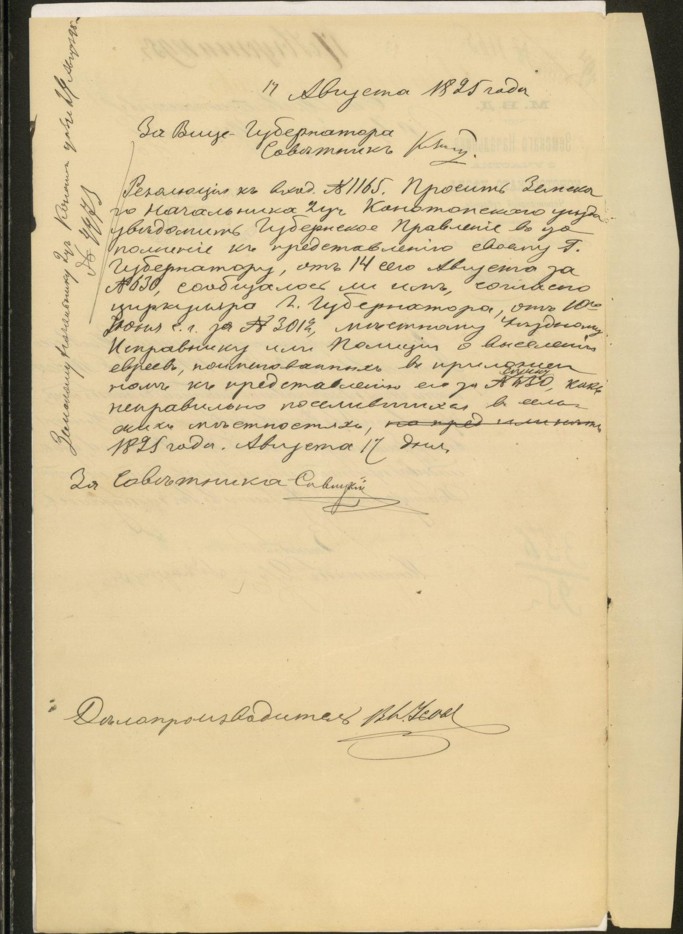 17 Августа 1895 года
За Вице-Губернатора
Совѣтникъ
Резолюція къ вход. № 1165. Просить Земска
го Начальника 2 уч. Конотопского уѣзда
увѣдомить Губернское Правленіе въ до
полненіе къ представленію своему Г.
Губернатору, отъ 14 сего Августа за
№ 630, сообщалось ли имъ, согласно
циркуляра Г. Губернатора, отъ 10го
Іюня с. г. за № 3012, мѣстному Уѣздному
Исправнику или Полиціи о выселеніи
евреевъ, поименованныхъ въ приложен
номъ къ представленію его за № 630, какъ
списку
неправильно поселившихся въ сель
скихъ мѣстностяхъ,
1895 года. Августа 17 дня.
За Совѣтника Савицкій
Дѣлопроизводитель
Земскому Начальнику 2 уч. Конотоп. уѣзда
№ 4473